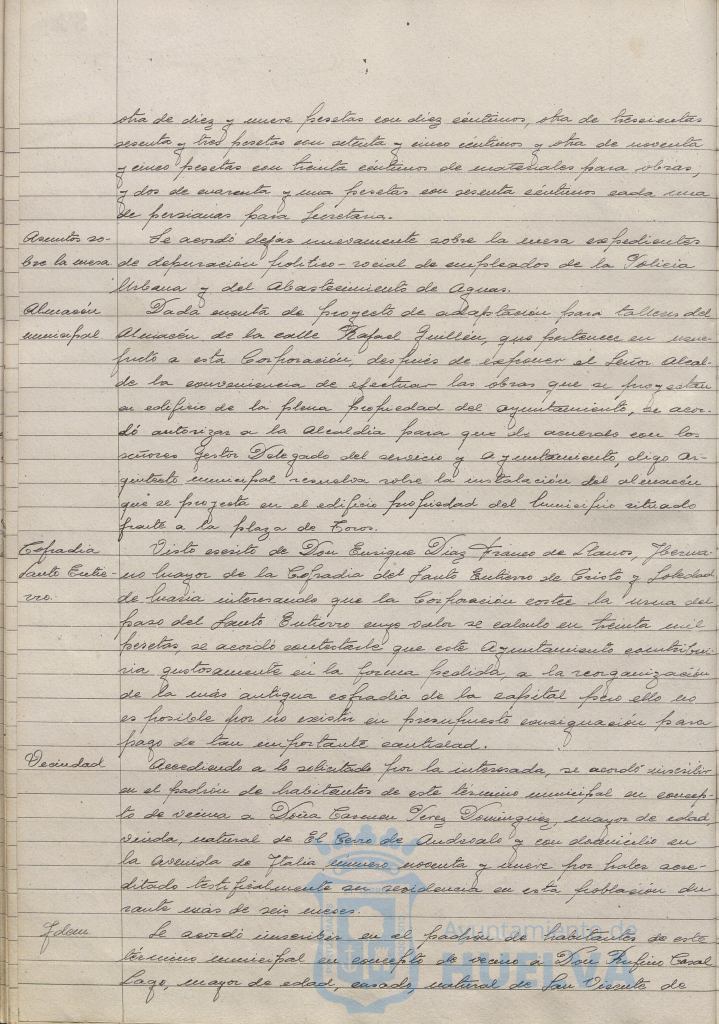 otra de diez y nueve pesetas con diez céntimos, otra de trescientas
sesenta y tres pesetas con setenta y cinco céntimos y otra de noventa
y cinco pesetas con treinta céntimos de materiales para obras,
y dos de cuarenta y una pesetas con sesenta céntimos cada una
de persianas para Secretaria.
Asuntos so-
bre la mesa
Se acordó dejar nuevamente sobre la mesa expedientes
de depuración politico-social de empleados de la Policia
Urbana y del Abastecimiento de Aguas.
Almacén
municipal
Dada cuenta de proyecto de adaptación para talleres del
Almacén de la calle Rafael Guillén, que pertenece en usu-
fructo a esta Corporación, después de exponer el Señor Alcal-
de la conveniencia de efectuar las obras que se proyectan
en edificio de la plena propiedad del ayuntamiento, se acor-
dó autorizar a la Alcaldia para que de acuerdo con los
señores Gestor Delegado del servicio y Ayuntamiento, digo Ar-
quitecto municipal resuelva sobre la instalación del almacén
que se proyecta en el edificio propiedad del Municipio situado
frente a la plaza de Toros.
Cofradia
Santo Entie-
rro.
Visto escrito de Don Enrique Diaz Franco de Llanos, Herma-
no mayor de la Cofradia del Santo Entierro de Cristo y Soledad
de Maria interesando que la Corporación costee la urna del
paso del Santo Entierro cuyo valor se calcula en treinta mil
pesetas, se acordó contestarle que este Ayuntamiento contribui-
ria gustosamente en la forma pedida, a la reorganización
de la más antigua cofradia de la capital pero ello no
es posible por no existir en presupuesto consignación para
pago de tan importante cantidad.
Vecindad
Accediendo a lo solicitado por la interesada, se acordó inscribir
en el padrón de habitantes de este término municipal en concep-
to de vecina a Doña Carmen Perez Dominguez, mayor de edad,
viuda, natural de El Cerro de Andévalo y con domicilio en
la Avenida de Italia, número noventa y nueve por haber acre-
ditado testificalmente su residencia en esta población du-
rante más de seis meses.
Idem
Se acordó inscribir en el padrón de habitantes de este
término municipal en concepto de vecino a Don Rufino Casal
Lago, mayor de edad, casado, natural de San Vicente de
Ayuntamiento de
HUELVA